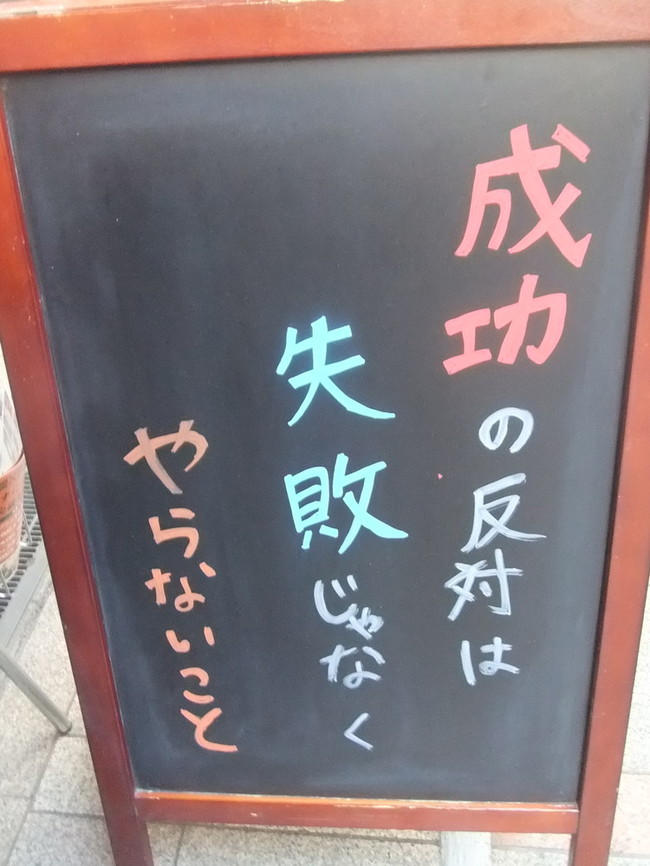 成功の反対は
失敗じゃなく
やらないこと